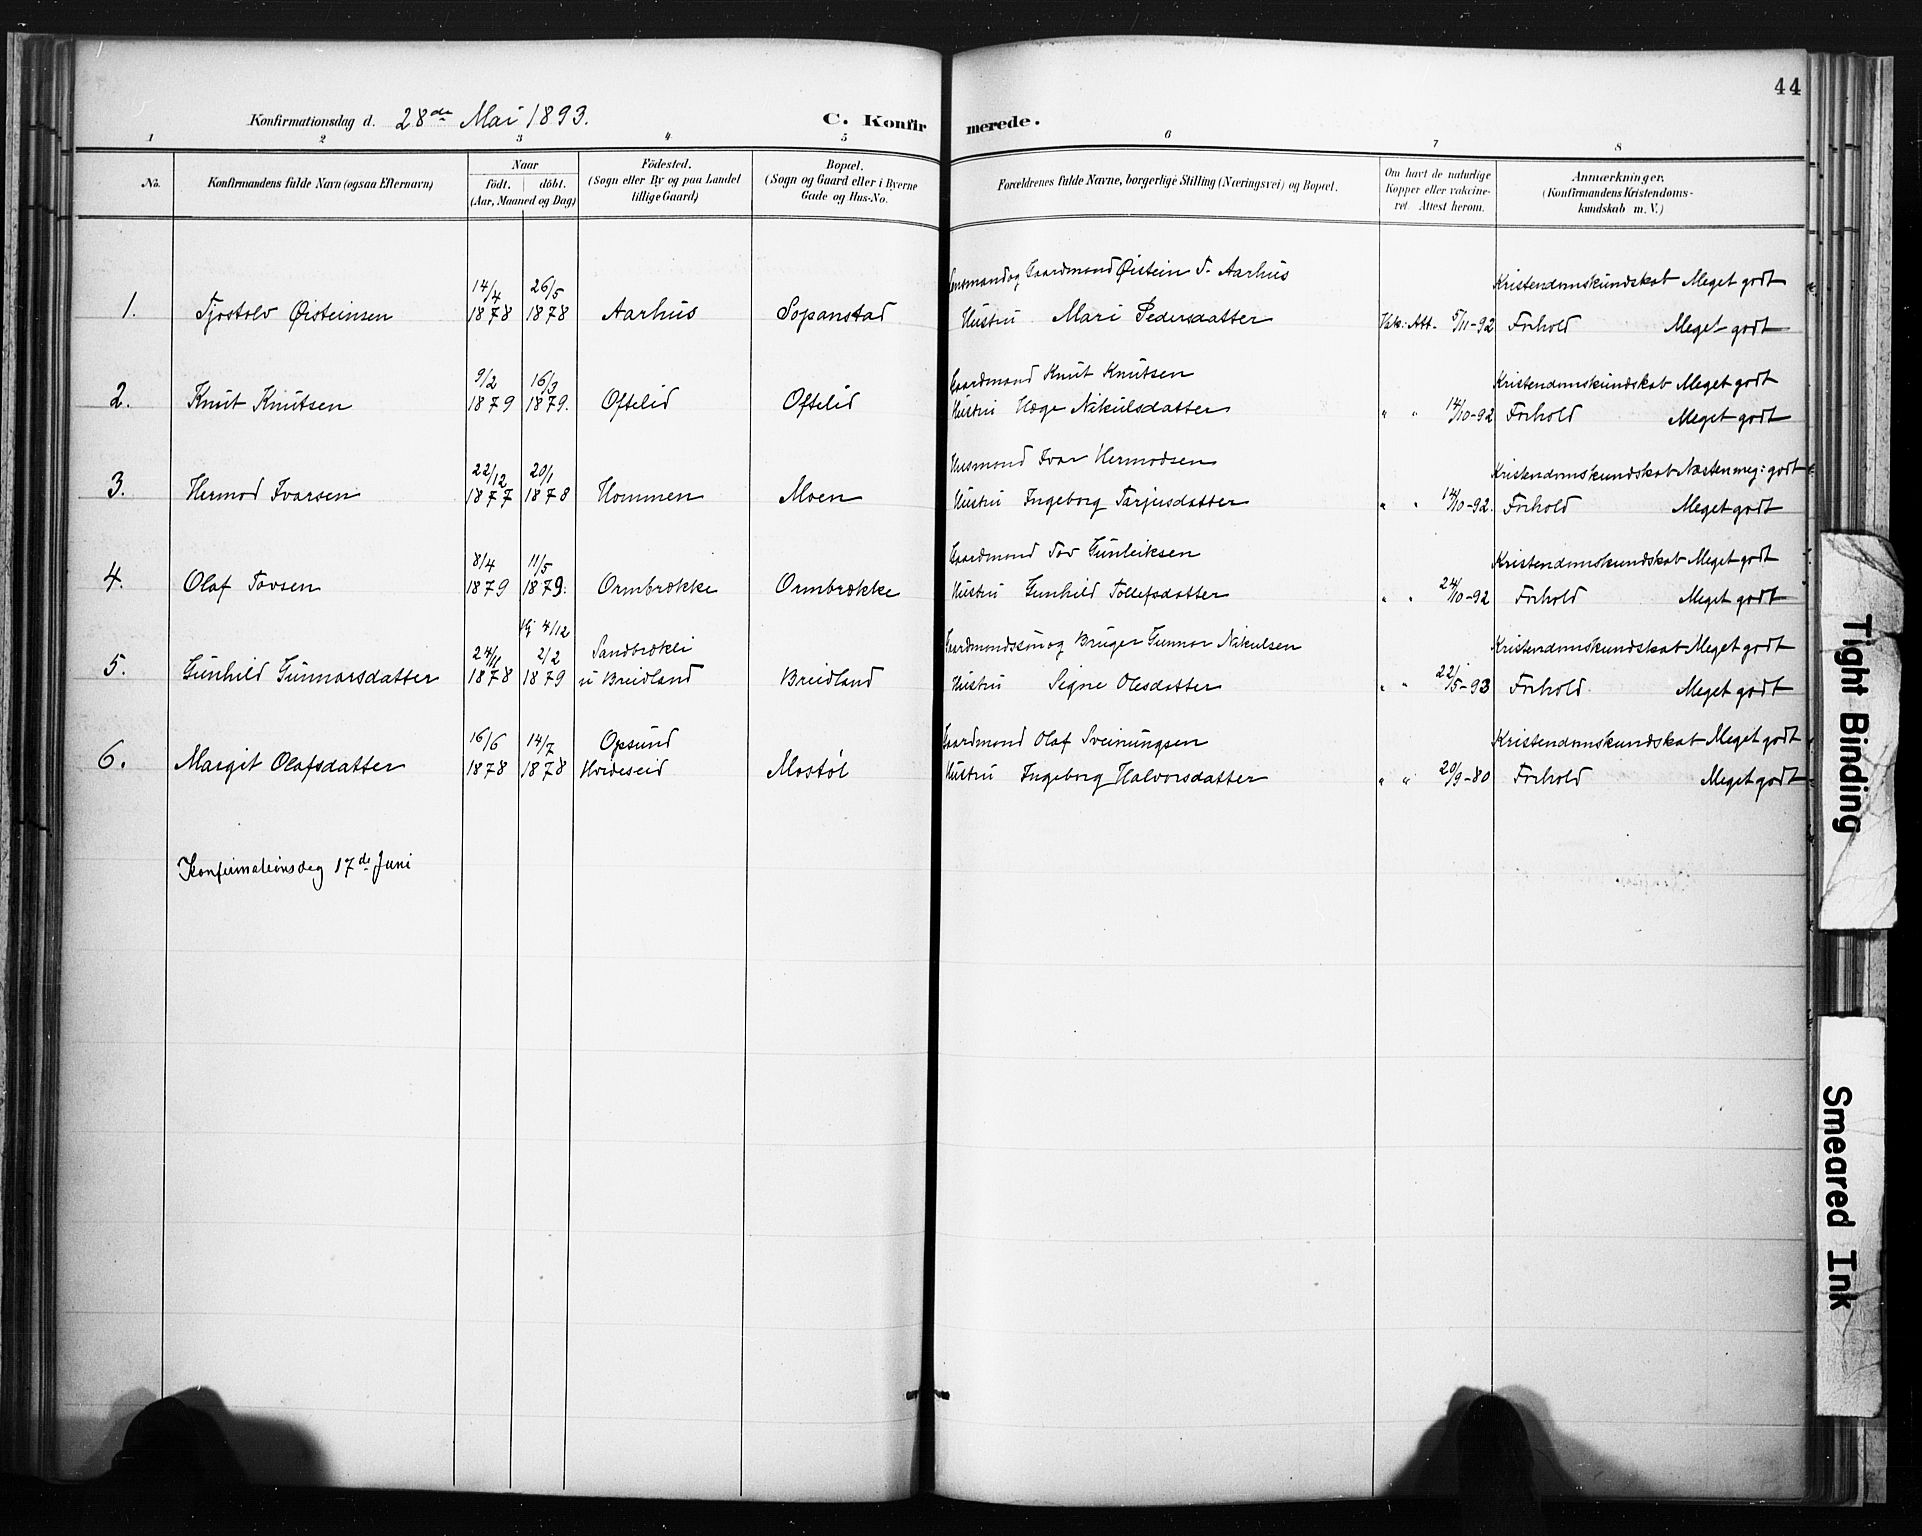 44
Konfirmationsdag d. 28de Mai 1893.
C. Konfirmerede.
1 2 3 4 5 6 7 8
No. Konfirmandens fulde Navn (ogsaa Efternavn) Naar födt. döbt. (Aar, Maaned og Dag) Födested. (Sogn eller By og paa Landet tillige Gaard) Bopæl. (Sogn og Gaard eller i Byerne Gade og Hus-No. Forældrenes fulde Navne, borgerlige Stilling (Næringsvei) og Bopæl. Om havt de naturlige Kopper eller vakcineret. Attest herom. Anmærkninger, (Konfirmandens Kristendomskundskab m. V.)
14/4 26/5 Lensmand og Gaardmand Øistein T. Aarhus Kristendomskundskab Meget godt
1. Tjostolv Øisteinsen 1878 1878 Aarhus Sopanstad Hustru Mari Pedersdatter Vak: Att. 5/11-92 Forhold Meget godt
9/2 16/3 Gaardmand Knut Knutsen Kristendomskundskab Meget godt
2. Knut Knutsen 1879 1879. Oftelid Oftelid Hustru Hæge Nikulsdatter " " 14/10-92 Forhold Meget godt
22/12 20/1 Husmand Ivar Hermodsen Kristendomskundskab Næsten meg: godt
3. Hermod Ivarsen 1877 1878 Hommen Moen Hustru Ingeborg Tarjusdatter " " 14/10-92. Forhold Meget godt
8/4 11/5 Gaardmand Tov Gunleiksen Kristendomskundskab Meget godt
4. Olaf Tovsen 1879 1879. Ormbrække Ormbrække Hustru Gunhild Tollefsdatter " " 24/10-92 Forhold Meget godt
4/12
24/11 2/2 Sandbrækli Gaardmandssøn og Bruger Gunnar Nikulsen Kristendomskundskab Meget godt
5. Gunhild Gunnarsdatter 1878 1879 u Breidland Breidland Hustru Signe Olesdatter " " 22/5-93 Forhold Meget godt
16/6 14/7 Opsund Gaardmand Olaf Sveinungsen Kristendomskundskab Meget godt
6. Margit Olafsdatter 1878 1878 Hvideseid Mostøl Hustru Ingeborg Halvorsdatter " " 20/9-80 Forhold Meget godt
Konfirmationsdag 17de Juni
Tight Binding
Smeared Ink